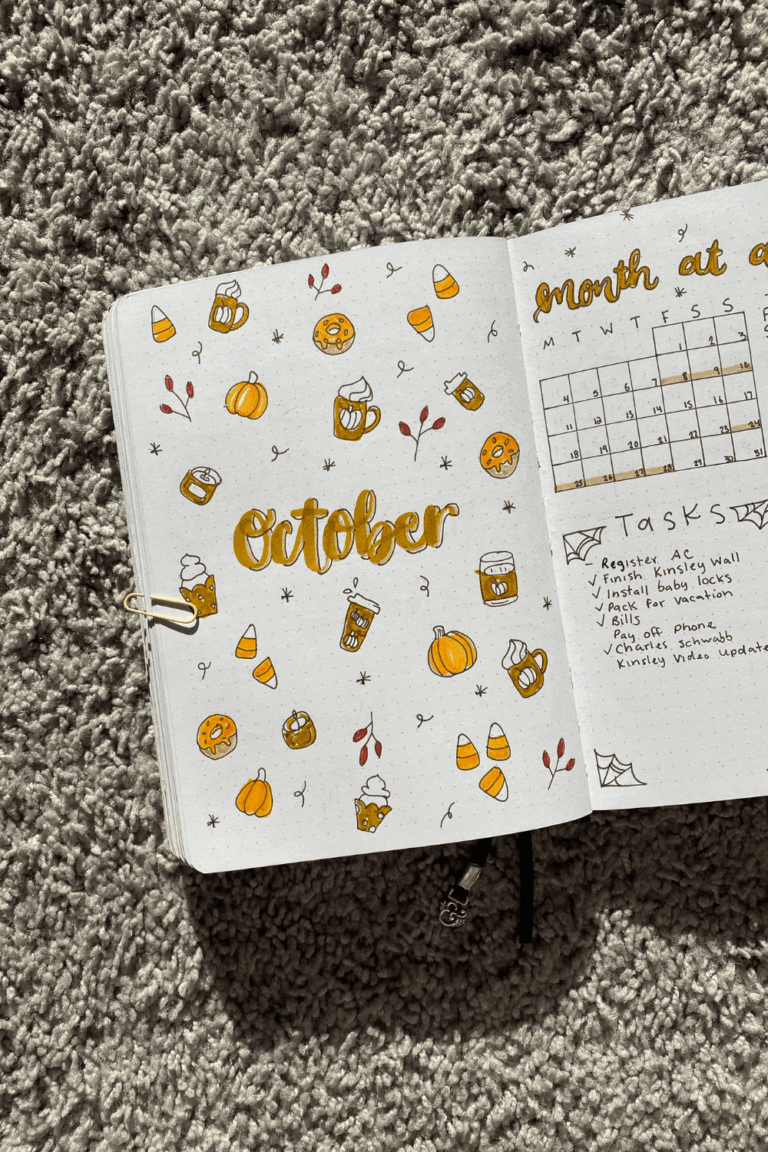 october
month at a
M T W T F S S
1 2 3
4 5 6 7 8 9 10
11 12 13 14 15 16 17
18 19 20 21 22 23 24
25 26 27 28 29 30 31
Tasks
- Register AC
✓ Finish Kinsley Wall
✓ Install baby locks
✓ Pack for vacation
✓ Bills
Pay off phone
✓ Charles Schwabb
Kinsley Video update